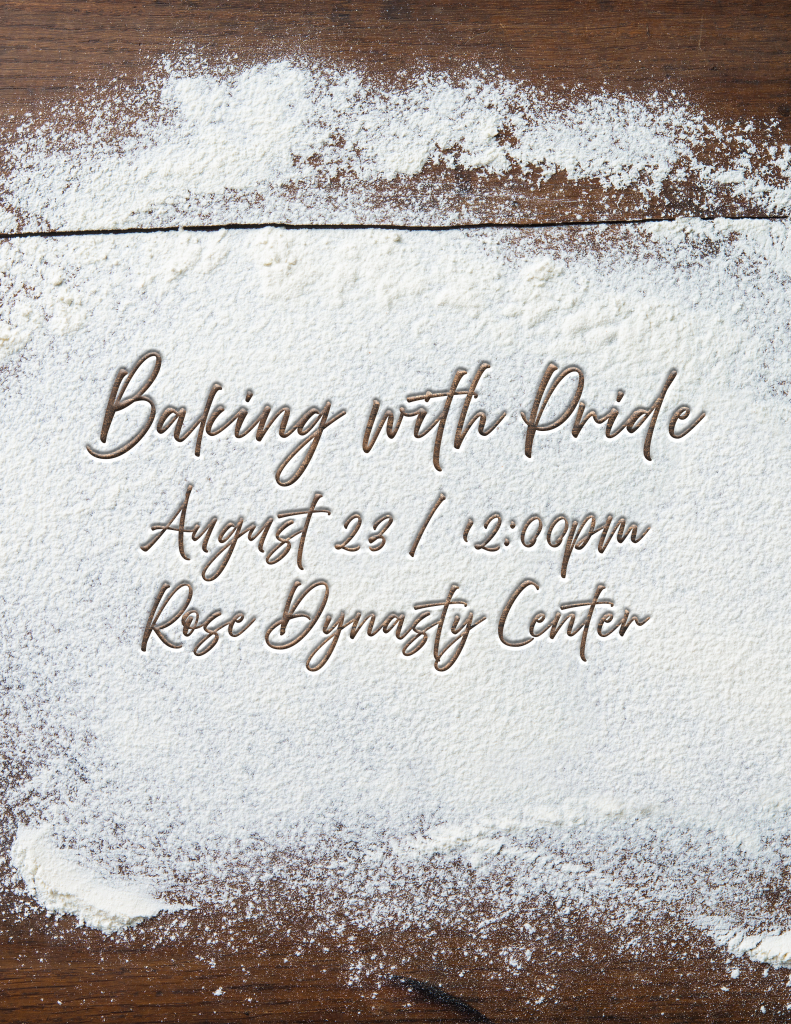 Baking with Pride
August 23 / 12:00pm
Rose Dynasty Center